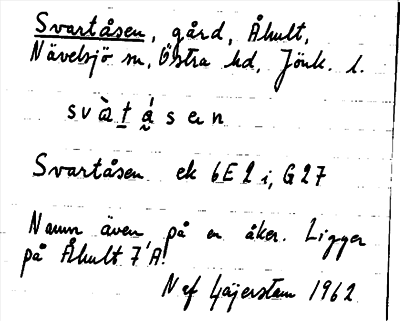 Svartåsen, gård, Åhult,
Nävelsjö sn, Östra hd, Jönk. l.
Svartåsen ek 6E2i, G27
Namn även på en åker. Ligger
på Åhult 7'A!
N af Geijerstam 1962